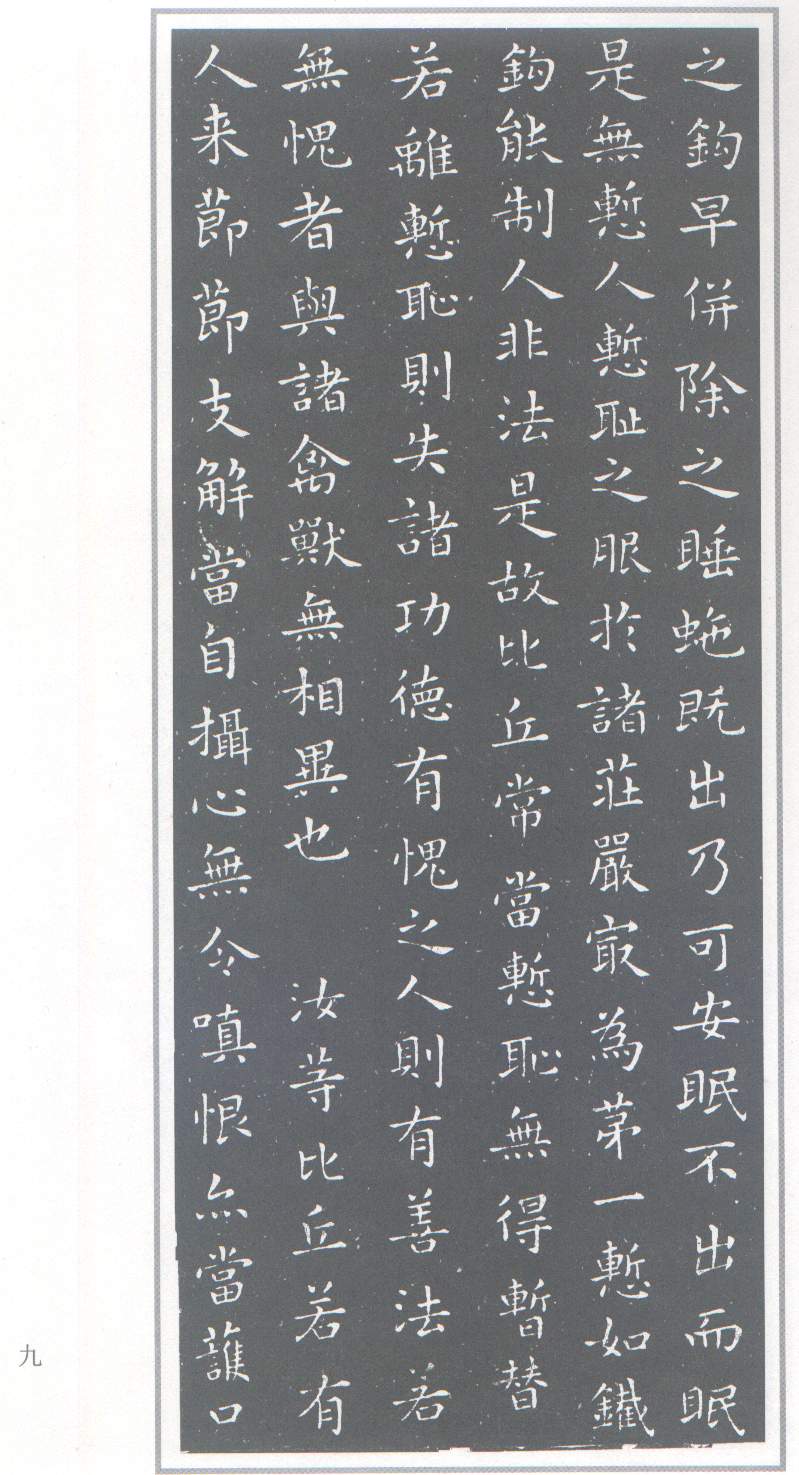 之鈎早併除之睡虵既出乃可安眠不出而眠
是無慙人慙耻之服於諸莊嚴㝡為苐一慙如鐵
鈎能制人非法是故比丘常當慙恥無得暫替
若離慙恥則失諸功德有愧之人則有善法若
無愧者與諸禽獸無相異也　汝䒭比丘若有
人来莭莭支解當自攝心無令嗔恨亦當護口
九